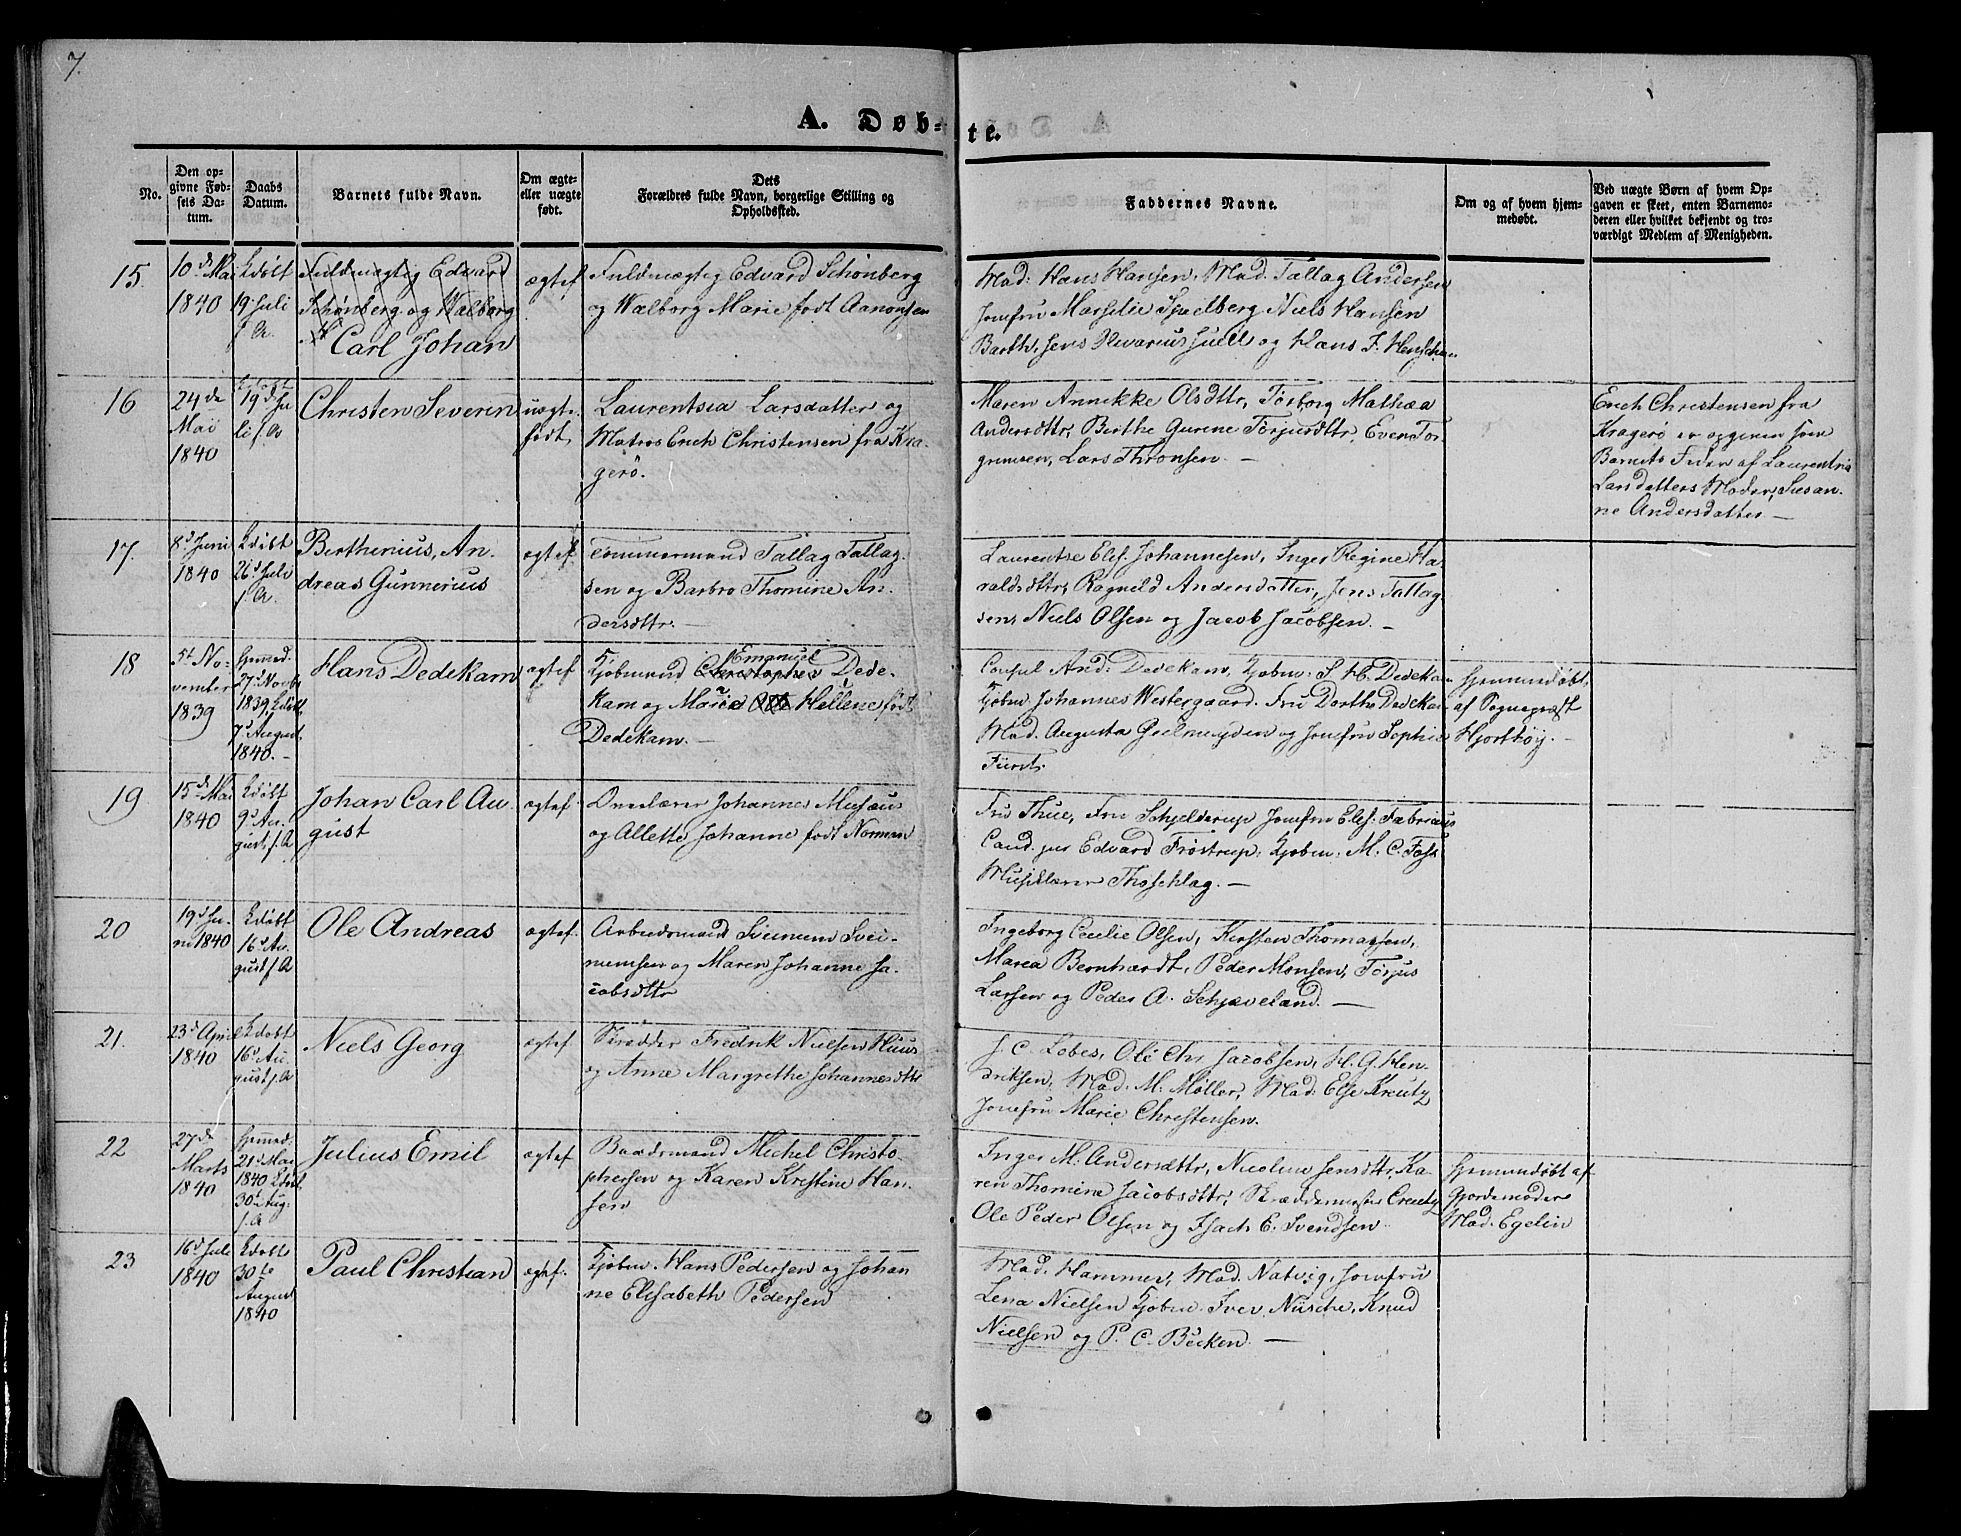 7.
A. Døb-
te.
No.
Den op-
givne Fød-
sels Da-
tum.
Daabs
Datum.
Barnets fulde Navn.
Om ægte-
eller uægte
født.
Dets
Forældres fulde Navn, borgerlige Stilling og
Opholdssted.
Faddernes Navne.
Om og af hvem hjem-
medøbt.
Ved uægte Børn af hvem Op-
gaven er skeet, enten Barnemo-
deren eller hvilket bekjendt og tro-
værdigt Medlem af Menigheden.
15.
10d Mai
1840
Kdøbt
19 Juli
f. A.
Fuldmægtig Edvard
Schønberg og Walborg
Carl Johan
ægtef
Fuldmægtig Edvard Schønberg
og Walborg Marie født Aanonsen
Mad: Hans Hansen, Mad. Tallag Andersen
Jomfru Marselie Spielberg Niels Hansen
Barth, Juell og Hans F. Henschen
16
24de
Mai
1840
Kdøbt
19d Ju
li f. A
Christen Severin
uægte
født
Laurentsia Larsdatter og
Matros Erich Christensen fra Kra-
gerø.
Maren Annikke Olsdttr, Torborg Mathea
Andersdttr, Berthe Gurine Torjusdttr, Even Tor-
grimsen, Lars Thronsen. —
Erich Christensen fra
Kragerø er opgiven som
Barnets Fader af Laurentsia
Larsdatters Moder, Susan-
ne Andersdatter —
17.
8d Juni
1840
Kdøbt
26d Juli
f. A.
Berthinius, An-
dreas Gunnerius
ægtef
Tømmermand Tallag Tallag-
sen og Barbro Thomine An-
dersdttr. —
Laurentse Elis. Johannesen, Inger Regine Ha-
raldsdttr, Ragnild Andersdatter, Jens Tallag
sen, Niels Olsen og Jacob Jacobsen. —
18
5t No-
vember
1839
hjmmed.
27d Novbr
1839, Kdøbt
7d August
1840. —
Hans Dedekam
ægtef
Emanuel
Kjøbmand Christopher Dede-
kam og Marie Hellene født
Dedekam. —
Consul And: Dedekam, Kjøbm: S. H. Dedekam
Kjøbm Johannes Westergaard. Fru Dorthe Dedekam
Mad. Augusta Gielmuyden og Jomfru Sophie
Fürst.
Hjemmedøbt
af Sognepræst
Hjorthøy. —
19
15d Mai
1840
Kdøbt
9d Au-
gust f. A
Johan Carl Au-
gust
ægtef.
Overlærer Johannes Musæus
og Allette Johanne født Norman
Fru Thue, Fru Schjelderup Jomfru Elis. Fabricius
Cand. jur Edvard Frøstrup, Kjøbm: M. C. Foss
Musiklærer Thoschlag. —
20
19d Ju-
ni 1840
Kdøbt
16d Au-
gust f. A
Ole Andreas
ægtef.
Arbeidsmand Sveinum Svei-
numsen og Maren Johanne Ja-
cobsdttr
Ingeborg Cecilie Olsen, Kirsten Thomassen,
Maren Bernhardt, Peder Monsen, Torjus
Larsen og Peder A. Schjæveland. —
21.
23d April
1840
Kdøbt
16d Au-
gust f. A
Niels Georg
ægtef
Skrædder Fredrik Nielsen Huus
og Anne Margrethe Johannesdttr
J. C. Lobes, Ole Chr Jacobsen, H. G. Hen-
driksen, Mad. M: Møller, Mad: Else Kreutz
Jomfru Marie Christensen.
22
27de
Marts
1840
hjmmed.
21d Mai
1840 Kdøbt
30t Aug-
f. A
Julius Emil
ægtef
Baadsmand Michel Christo-
phersen og Karen Kristine Han-
sen
Inger M: Andersdttr, Nicoline Jensdttr, Ka-
ren Thomine Jacobsdttr, Skræddermester Creutz
Ole Peder Olsen og Isach E. Svendsen
Hjemmedøbt af
Gjordemoder
Mad. Egelin
23
16d Juli
1840
Kdøbt
30te
August
1840
Paul Christian
ægtef.
Kjøbm. Hans Pedersen og Johan
ne Elisabeth Pedersen
Mad. Hammer, Mad. Natvig, Jomfru
Lena Nielsen Kjøbm. Iver Nusche, Knud
Nielsen og P. C. Becken. —